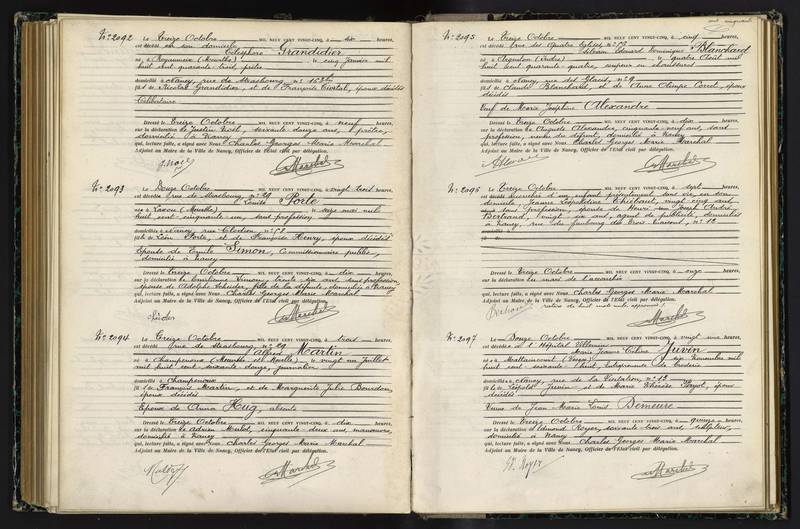 N° 2092 Le Treize Octobre MIL NEUF CENT VINGT-CINQ, à dix heures,
est décédé en son domicile
Grandidier
né à (Meurthe) le cinq janvier mil
huit cent quarante-trois, prêtre
domicilié à Nancy, rue de Strasbourg, n°
fils de Nicolas Grandidier, et de Françoise époux décédés
Célibataire
Dressé le Treize Octobre MIL NEUF CENT VINGT-CINQ, à neuf heures,
sur la déclaration de Justin Noël, soixante-douze ans, prêtre,
domicilié à Nancy
qui, lecture faite, a signé avec Nous Charles Georges Marie Maréchal
Adjoint au Maire de la Ville de Nancy, Officier de l'État civil par délégation.
J. Noël Maréchal
N° 2093 Le Douze Octobre MIL NEUF CENT VINGT-CINQ, à vingt trois heures,
est décédée rue de Strasbourg, n° 29
Louise Porte
née à Laxou (Meurthe) le seize mai mil
huit cent cinquante-un, sans profession
domiciliée à Nancy, rue Clodion, n°
fille de Léon Porte, et de Françoise Henry, époux décédés
Epouse de Emile Simon, Commissionnaire public,
domicilié à Nancy
Dressé le Treize Octobre MIL NEUF CENT VINGT-CINQ, à dix heures,
sur la déclaration de Simon, trente six ans, sans profession,
épouse de Adolphe fille de la défunte, domiciliée à Nancy
qui, lecture faite, a signé avec Nous Charles Georges Marie Maréchal
Adjoint au Maire de la Ville de Nancy, Officier de l'État civil par délégation.
Maréchal
N° 2094 Le Treize Octobre MIL NEUF CENT VINGT-CINQ, à trois heures,
est décédé rue de Strasbourg, n° 29
Alfred Martin
né à Champenoux (Meurthe et Moselle) le vingt un Juillet
mil huit cent soixante-douze, journalier
domicilié à Champenoux
fils de François Martin, et de Marguerite Julie Bourdon,
époux décédés
Epoux de Anna Hug, absente
Dressé le Treize Octobre MIL NEUF CENT VINGT-CINQ, à dix heures,
sur la déclaration de Adrien cinquante-deux ans, manœuvre,
domicilié à Nancy
qui, lecture faite, a signé avec Nous Charles Georges Marie Maréchal
Adjoint au Maire de la Ville de Nancy, Officier de l'État civil par délégation.
Maréchal
N° 2095 Le Treize Octobre MIL NEUF CENT VINGT-CINQ, à cinq heures,
est décédé rue des Quatre Eglises, n°
Edouard Dominique Blanchard
né à Argenton (Indre) le quatre Août mil
huit cent quarante-quatre, coupeur en chaussures
domicilié à Nancy, rue des Glacis, n° 9
fils de Claude Blanchard, et de Anne Olimpe époux
décédés
Veuf de Marie Joséphine Alexandre
Dressé le Treize Octobre MIL NEUF CENT VINGT-CINQ, à dix heures,
sur la déclaration de Auguste Alexandre, cinquante-neuf ans, sans
profession, neveu du défunt, domicilié à Nancy
qui, lecture faite, a signé avec Nous Charles Georges Marie Maréchal
Adjoint au Maire de la Ville de Nancy, Officier de l'État civil par délégation.
Maréchal
N° 2096 Le Treize Octobre MIL NEUF CENT VINGT-CINQ, à sept heures,
est accouchée d'un enfant présentement sans vie, en son
domicile, Jeanne Léopoldine Thiébaut, vingt cinq ans,
sans profession, épouse de Joseph André
Bertrand, vingt six ans, agent de publicité, domiciliés
à Nancy, rue du faubourg des Trois Maisons, n° 13
Dressé le Treize Octobre MIL NEUF CENT VINGT-CINQ, à onze heures,
sur la déclaration du mari de l'accouchée
qui, lecture faite, a signé avec Nous Charles Georges Marie Maréchal
Adjoint au Maire de la Ville de Nancy, Officier de l'État civil par délégation.
rature de huit mots nuls approuvée
Maréchal
N° 2097 Le Douze Octobre MIL NEUF CENT VINGT-CINQ, à vingt une heures,
est décédée à l'Hôpital Villemin
Marie Jeanne Céline Juvin
née à Mattaincourt (Vosges) le dix Novembre mil
huit cent soixante-huit, entrepreneuse de broderie
domiciliée à Nancy, rue de la Visitation, n° 13
fille de Léopold Juvin et de Marie Thérèse époux
décédés
Veuve de Jean Marie Louis Demeure
Dressé le Treize Octobre MIL NEUF CENT VINGT-CINQ, à quinze heures,
sur la déclaration d'Edmond Royer, soixante trois ans,
domicilié à Nancy
qui, lecture faite, a signé avec Nous Charles Georges Marie Maréchal
Adjoint au Maire de la Ville de Nancy, Officier de l'État civil par délégation.
E. Royer Maréchal